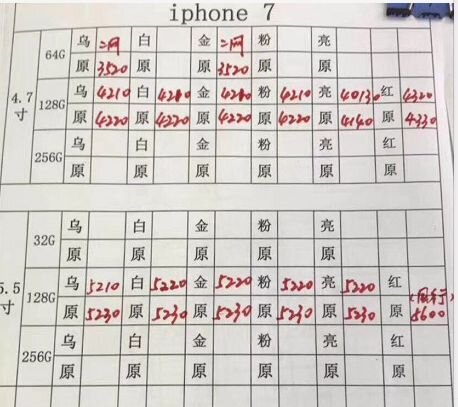 iphone 7
4.7寸 64G 乌 二网 白 金 二网 粉 亮
原 3520 原 原 3520 原 原
128G 乌 4210 白 4210 金 4210 粉 4210 亮 4130 红 4320
原 4220 原 4220 原 4220 原 4220 原 4140 原 4330
256G 乌 白 金 粉 亮 红
原 原 原 原 原 原
5.5寸 32G 乌 白 金 粉 亮
原 原 原 原 原
128G 乌 5210 白 5220 金 5220 粉 5220 亮 5220 红
原 5230 原 5230 原 5230 原 5230 原 5230 原 5600
256G 乌 白 金 粉 亮 红
原 原 原 原 原 原